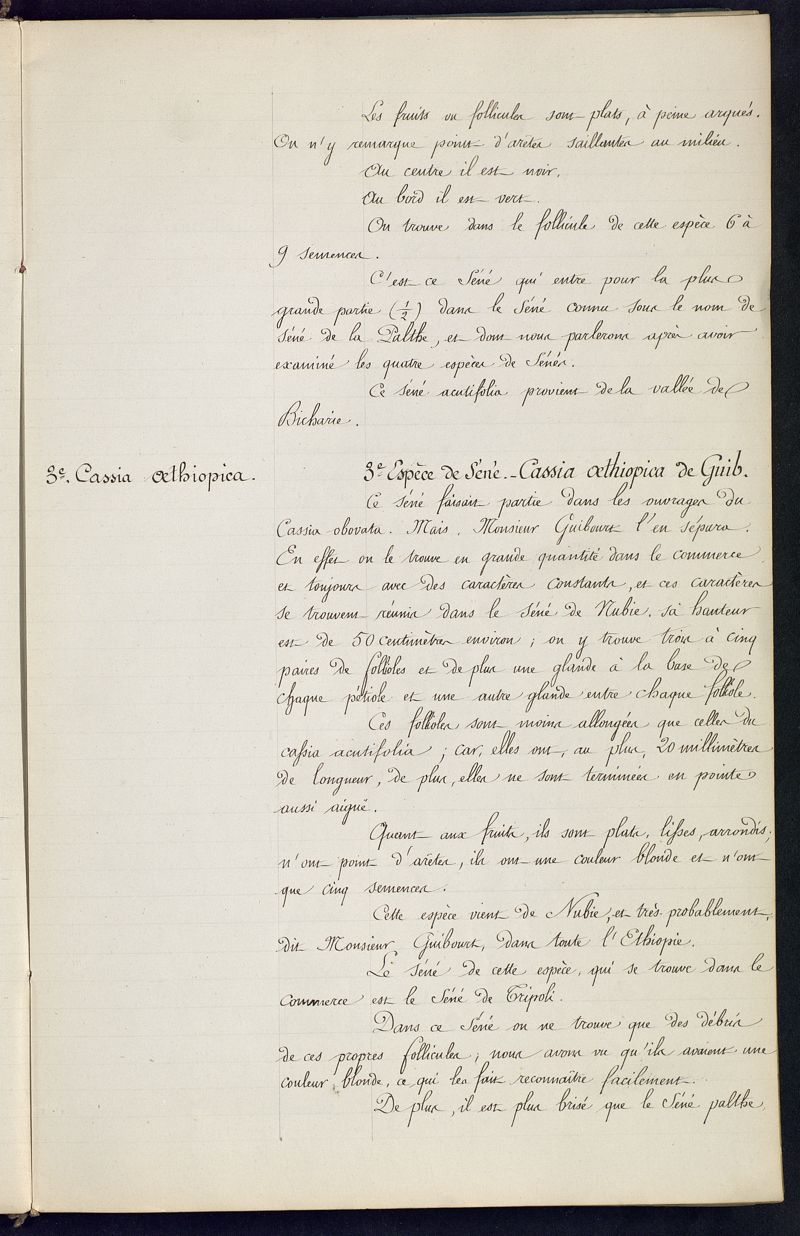 Les fruits ou follicules sont plats, à peine arqués.
On n'y remarque point d'arêtes saillantes au milieu.
Au centre il est noir.
Au bord il est vert.
On trouve dans le follicule de cette espèce 6 à
9 semences.
C'est ce Séné qui entre pour la plus
grande partie (1/2) dans le Séné connu sous le nom de
Séné de la Palthe, et dont nous parlerons après avoir
examiné les quatre espèces de Sénés.
Ce séné acutifolia provient de la vallée de
Bicharie.
3e. Cassia œthiopica.
3e Espèce de Séné._Cassia œthiopica de Guib.
Ce séné faisait partie dans les ouvrages du
Cassia obovata. Mais, Monsieur Guibourt l'en sépara.
En effet on le trouve en grande quantité dans le commerce
et toujours avec des caractères constants, et ces caractères
se trouvent réunis dans le séné de Nubie. sa hauteur
est de 50 centimètres environ; on y trouve trois à cinq
paires de folioles et de plus une glande à la base de
chaque pétiole et une autre glande entre chaque foliole.
Ces folioles sont moins allongées que celles du
cassia acutifolia; car, elles ont, au plus, 20 millimètres
de longueur, de plus, elles ne sont terminées en pointe
aussi aiguë.
Quant aux fruits, ils sont plats, lisses, arrondis;
n'ont point d'arêtes, ils ont une couleur blonde et n'ont
que cinq semences.
Cette espèce vient de Nubie, et très probablement,
dit Monsieur Guibourt, dans toute l'Ethiopie.
Le séné de cette espèce, qui se trouve dans le
commerce est le Séné de Tripoli.
Dans ce Séné on ne trouve que des débris
de ces propres follicules; nous avons vu qu'ils avaient une
couleur blonde, ce qui les fait reconnaître facilement.
De plus, il est plus brisé que le Séné palthe